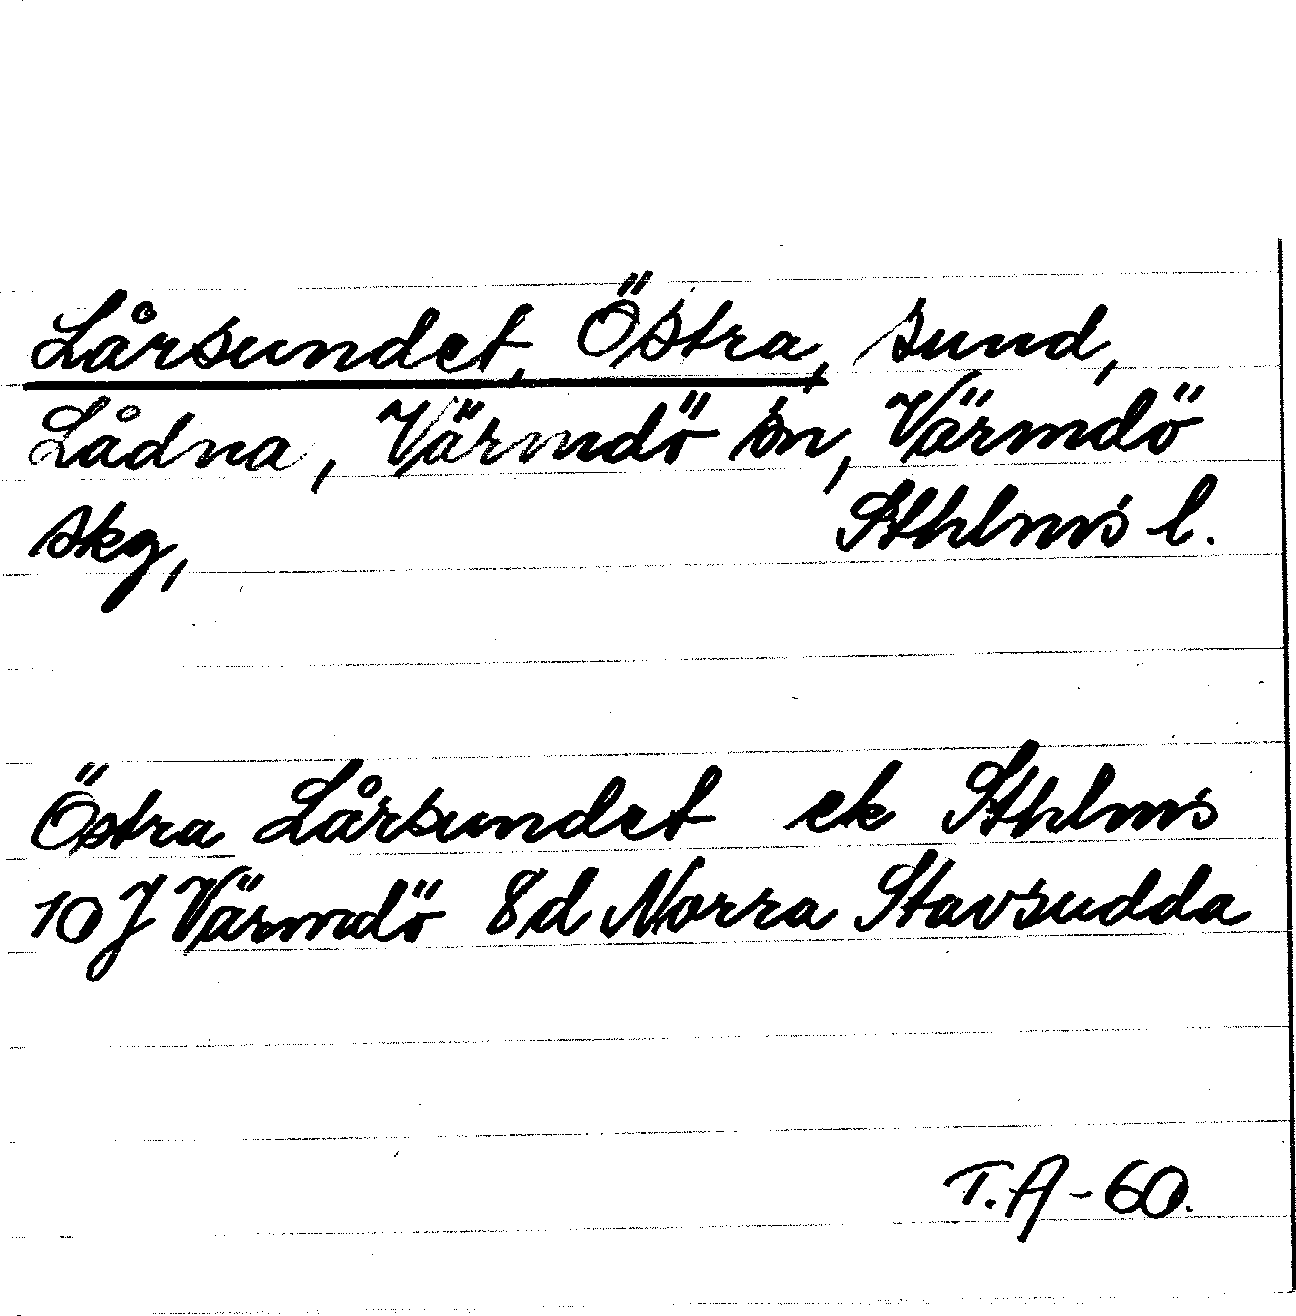 Lårsundet, Östra, sund,
Lådna, Värmdö sn, Värmdö
skg, Sthlms l.
Östra Lårsundet ek Sthlms
10J Värmdö 8d Norra Stavsudda
T.A-60.